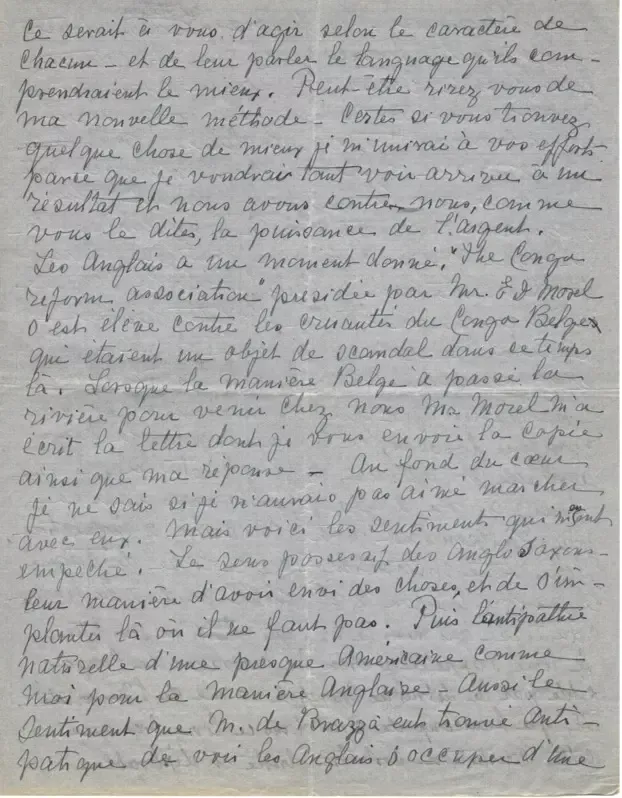 Ce serait à vous d'agir selon le caractère de
chacun - et de leur parler le language qu'ils com-
prendraient le mieux. Peut-être rirez vous de
ma nouvelle méthode - Certes si vous trouvez
quelque chose de mieux je m'unirai à vos efforts
parce que je voudrais tant voir arriver à un
résultat et nous avons contre nous, comme
vous le dites, la puissance de l'argent.
Les Anglais a un moment donné, "The Congo
reform association" présidée par Mr. E D Morel
s'est élevé contre les cruautés du Congo Belge
qui étaient un objet de scandal dans ce temps
là. Lorsque la manière Belge a passé la
rivière pour venir chez nous Mr Morel m'a
écrit la lettre dont je vous envoie la copie
ainsi que ma réponse - Au fond du cœur
je ne sais si je n'aurais pas aimé marcher
avec eux. Mais voici les sentiments qui m'en ont
empeché. Le sens possessif des Anglo Saxons-
leur manière d'avoir envi des choses, et de s'im-
planter là où il ne faut pas. Puis l'antipathie
naturelle d'une presque Américaine comme
moi pour la manière Anglaise - Aussi le
sentiment que M. de Brazza eut trouvé anti-
patique de voir les Anglais s'occuper d'une